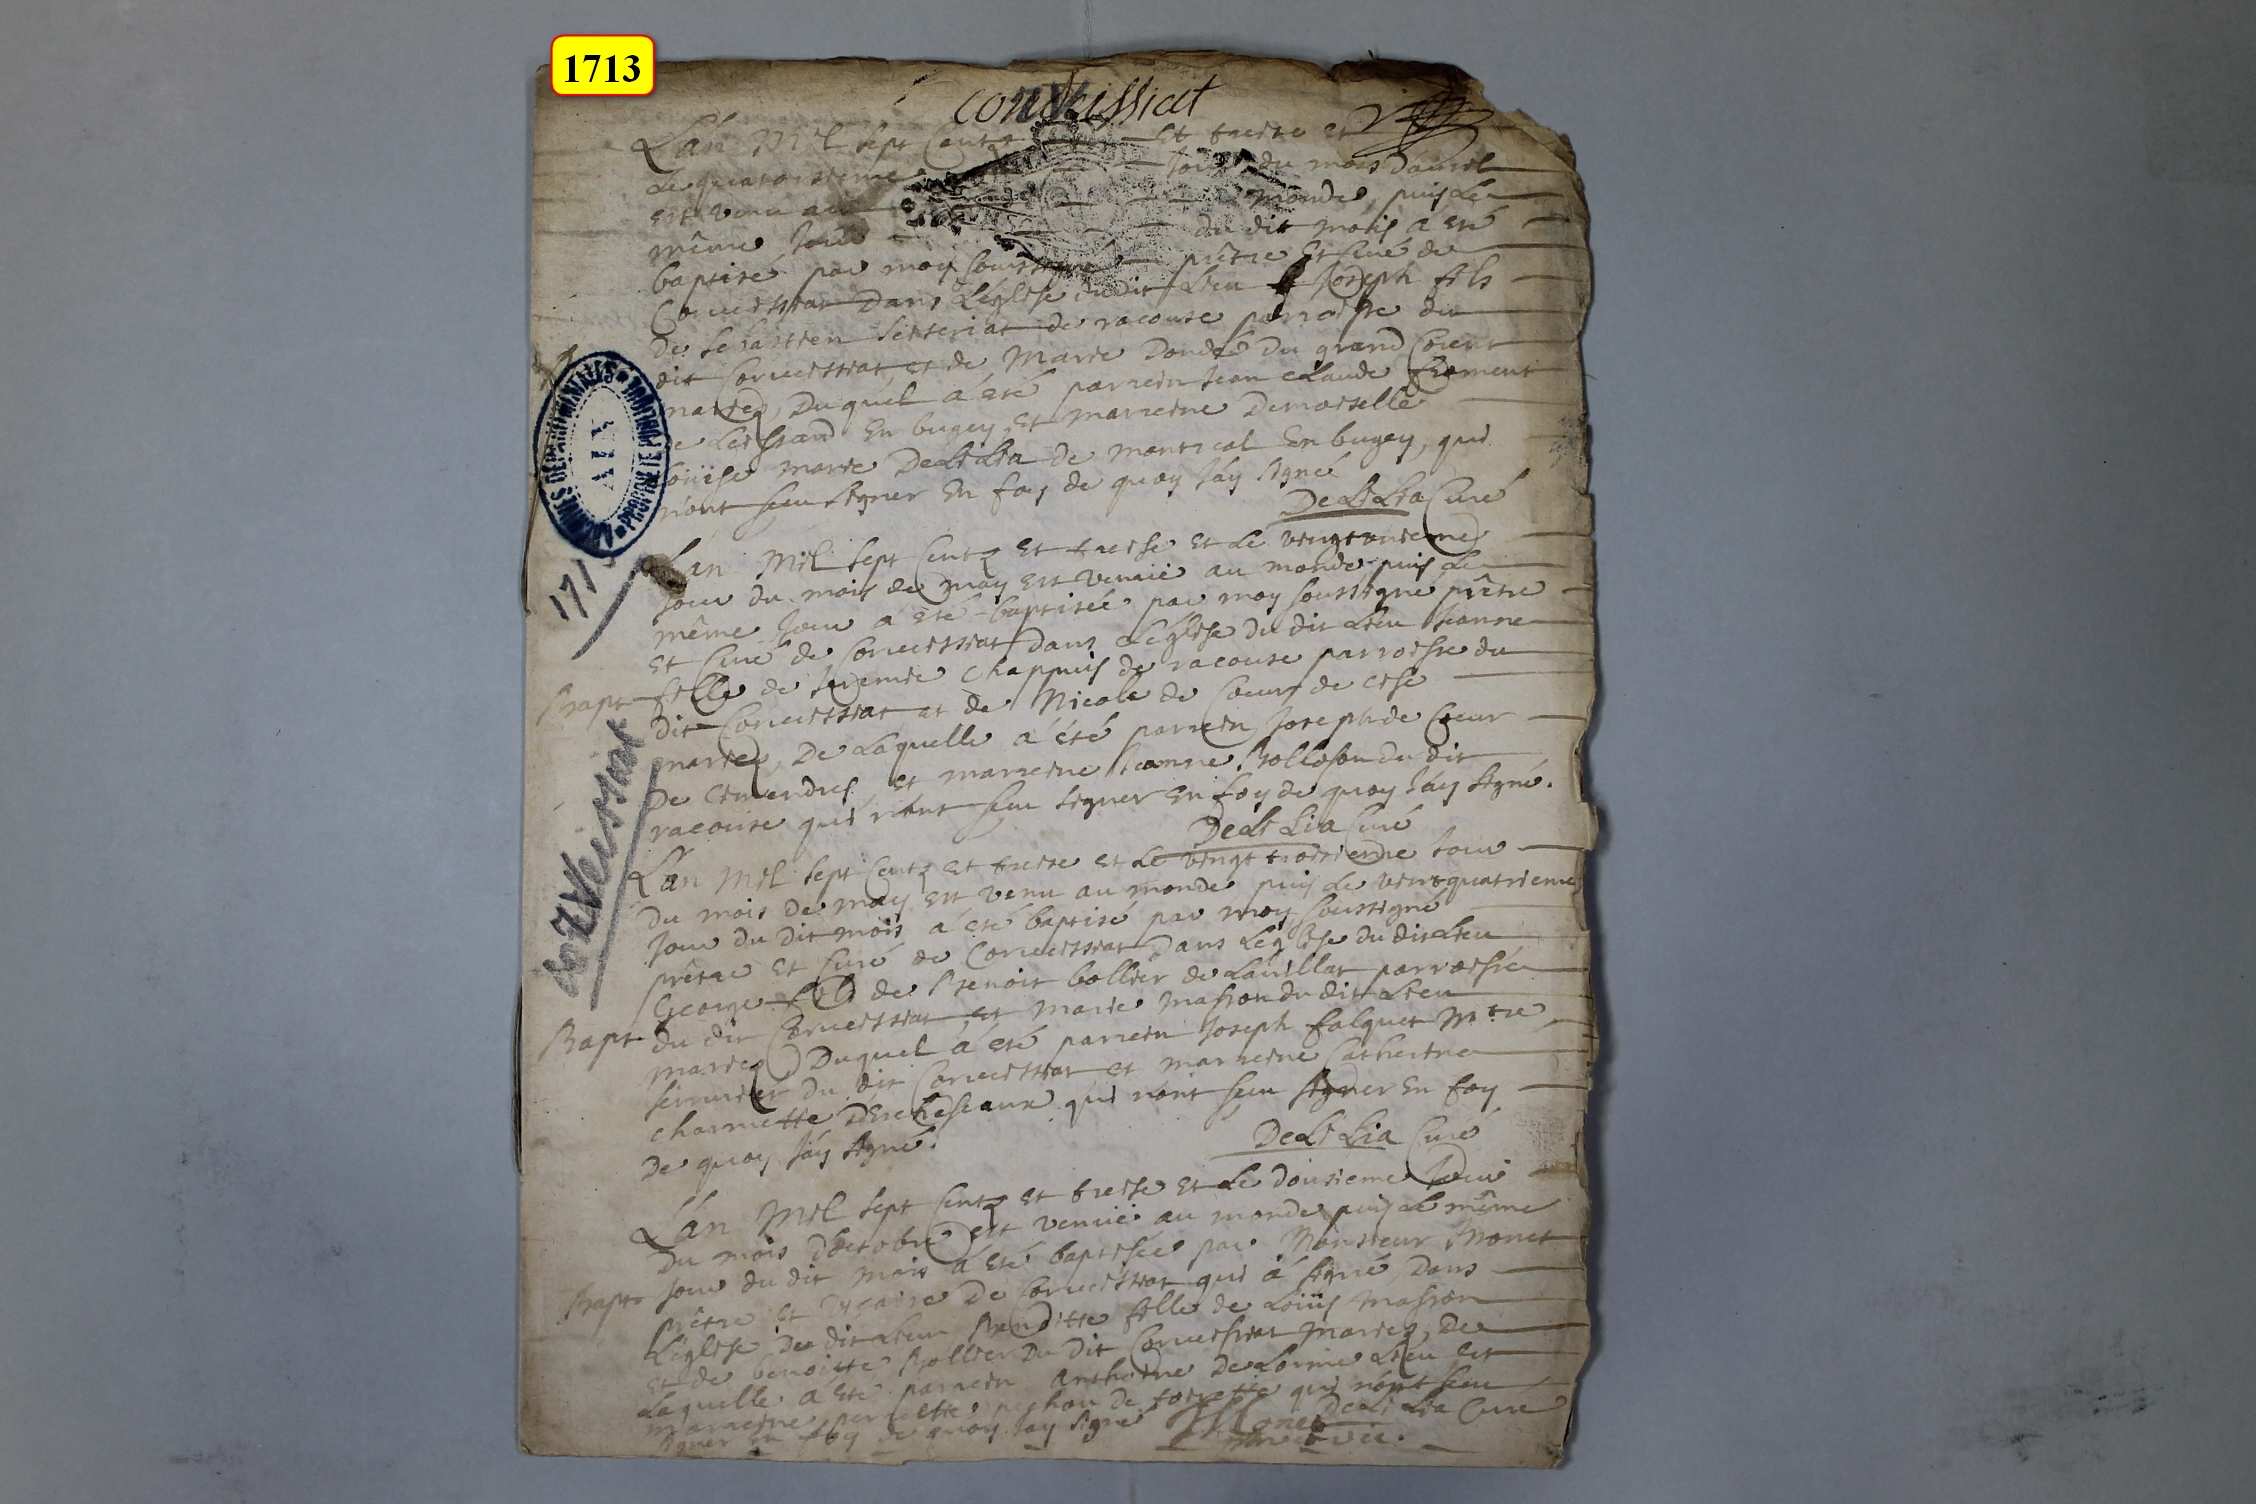 1713
corveissiat
L'an Mil sept Centz et treise et
Le quatorsieme jour du mois d'auril
est venu au monde, puis Le
même jour du dit mois a été
baptisé par moy soussigné prêtre et Curé de
Corveissiat Dans L'église du dit Lieu Joseph fils
De sebastien de racouse parroisse du
dit Corveissiat, et de Marie Donde Du grand Corent
mariez, Duquel a été parrein Jean claude froment
de Leissard En bugey, et marreine Demoiselle
Loüise marie DeLiLia de montreal En bugey, qui
n'ont sceu signer En foy de quoy J'ay signé
DeLiLia Curé
ARCHIVES DEPARTEMENTALES
AIN
PROPRIETE PUBLIQUE
171
L'an Mil sept Centz et treise et Le vingtonsieme
jour du mois de may est venuë au monde puis Le
même jour a été baptisée par moy soussigné prêtre
et Curé de Corveissiat Dans L'église du dit Lieu Jeanne
Bapt fille de chappuis de racouse parroisse du
dit Corveissiat et de Nicole de Coeur de cise
mariez, De Laquelle a été parrein Joseph de Coeur
De cimandres, et marreine Jeanne du dit
racouse qui n'ont sceu signer en foy de quoy J'ay signé.
DeLiLia Curé
CorVeissiat
L'an Mil sept Centz et treise et Le vingt troisieme jour
Du mois De may est venu au monde puis Le vintquatrieme
jour du dit mois a été baptisé par moy soussigné
prêtre et Curé de Corveissiat Dans L'église du dit Lieu
George fils de Benoit bollier de Lavillat parroisse
Bapt du dit Corveissiat, et Marie Masson du dit Lieu
mariez Duquel a été parrein Joseph falquet Mtre
serrurier du dit Corveissiat et marreine Catherine
charmette D'Echeseaux qui n'ont sceu signer En foy
De quoy J'ay signé.
DeLiLia Curé
L'an Mil sept Centz et treise et Le dousieme jour
Du mois D'octobre est venuë au monde puis Le même
jour du dit mois a été baptisée par Monsieur Monet
Bapt prêtre et vicaire De Corveissiat qui a signé, Dans
L'église du dit Lieu Benoitte fille de Loüis Masson
et de benoitte Bollier Du dit Corveissiat mariez, De
Laquelle a été parrein Anthoine DeLorme
marreine pernette pechou de qui n'ont sceu
signer en foy de quoy J'ay signé DeLiLia Curé
Monet
vic.